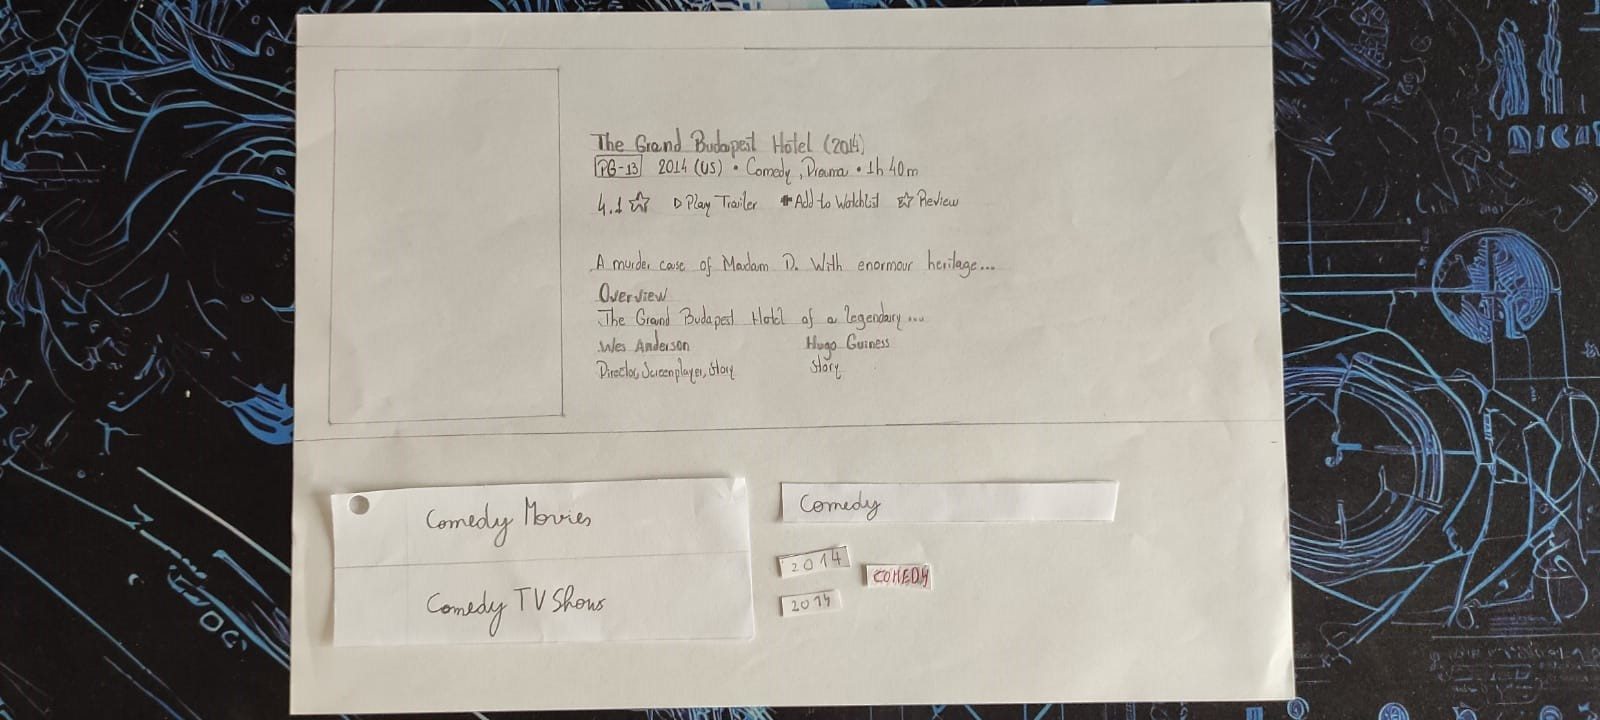 The Grand Budapest Hotel (2014)
PG-13 2014 (US) • Comedy, Drama • 1h 40m
4.1 ☆ ▷ Play Trailer + Add to Watchlist ☆ Review
A murder case of Madam D. With enormour heritage...
Overview
The Grand Budapest Hotel of a legendary...
Wes Anderson Hugo Guiness
Director, Screenplayer, Story Story
Comedy Movies
Comedy TV Shows
Comedy
2014
COMEDY
2014